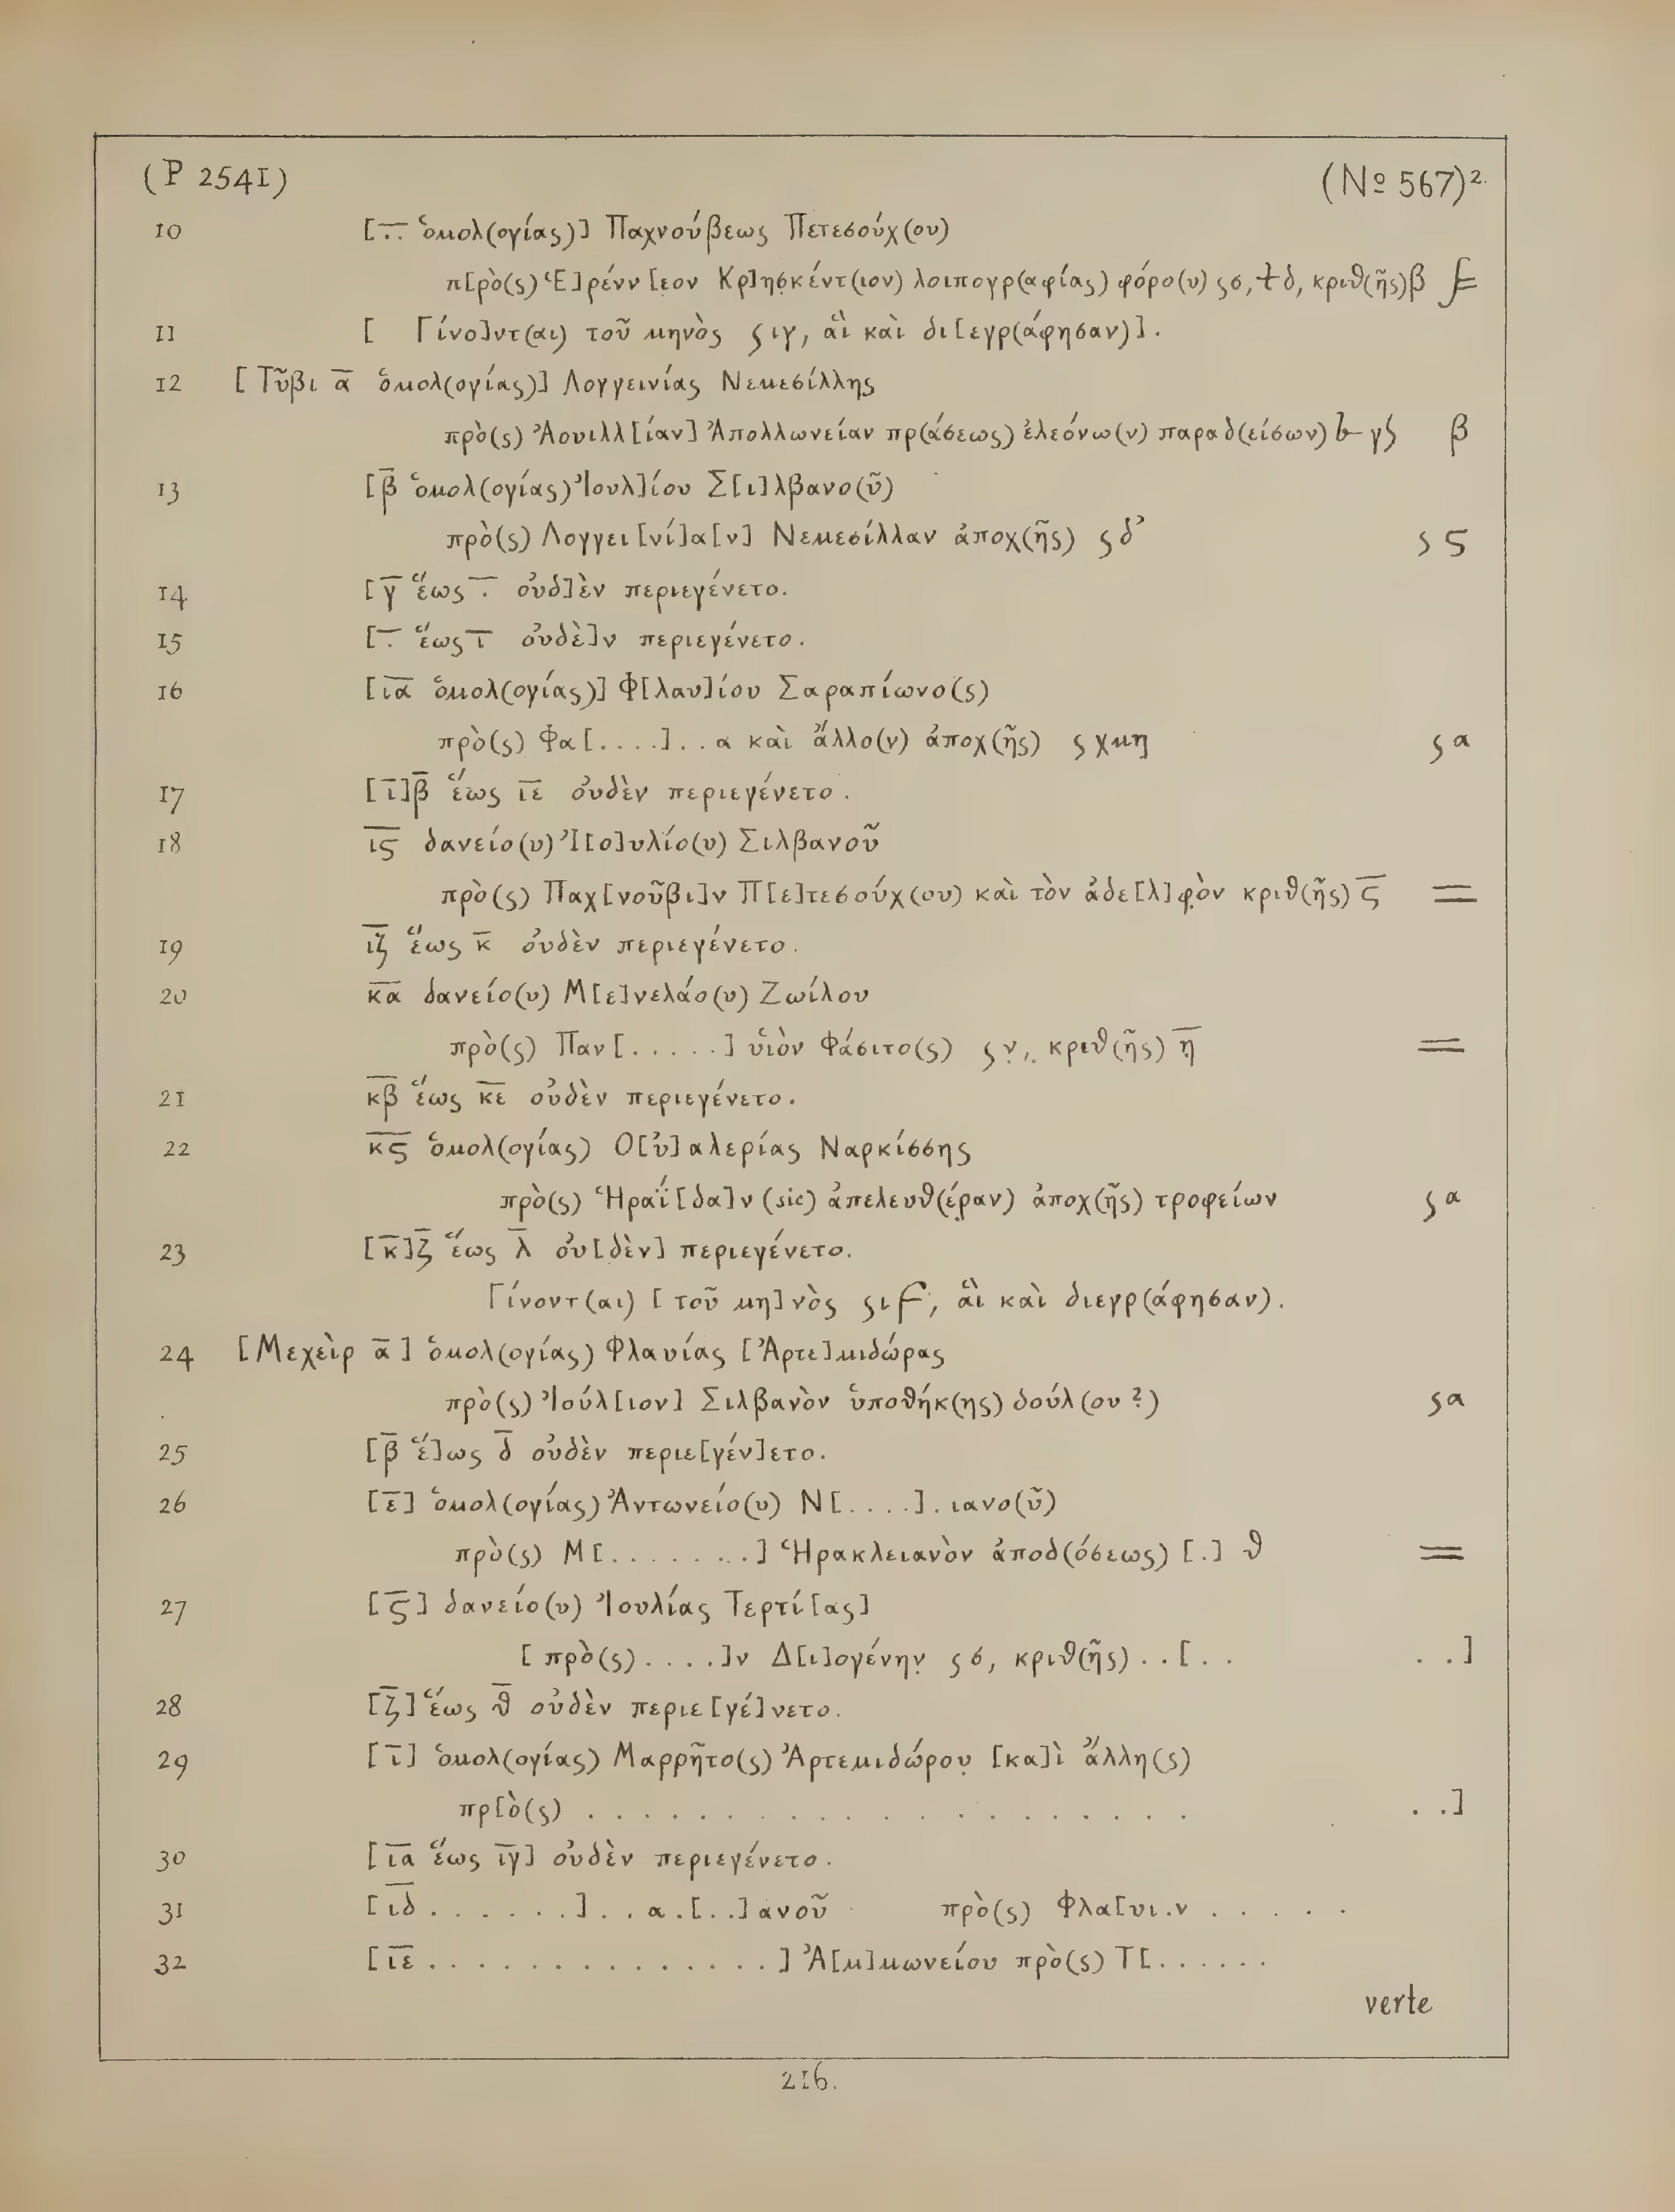 (P 2541) (Nº 567)².
10 [⁻.. ὁμολ(ογίας)] Παχνούβεως Πετεσούχ(ου)
π[ρὸ(ς) Ἑ]ρένν[εον Κρ]ησκέντ(ιον) λοιπογρ(αφίας) φόρο(υ) ϛσ, ⳨δ, κριθ(ῆς)β
11 [ Γίνο]ντ(αι) τοῦ μηνὸς ϛιγ, ἃὶ καὶ δι[εγρ(άφησαν)].
12 [Τῦβι α̅ ὁμολ(ογίας)] Λογγεινίας Νεμεσίλλης
πρὸ(ς) Ἀουιλλ[ίαν] Ἀπολλωνείαν πρ(άσεως) ἐλεόνω(ν) παραδ(είσων) γϛ β
13 [β̅ ὁμολ(ογίας) Ἰουλ]ίου Σ[ι]λβανο(ῦ)
πρὸ(ς) Λογγει[νί]α[ν] Νεμεσίλλαν ἀποχ(ῆς) ϛδ’ ϛ ϛ
14 [γ̅ ἕως .̅ οὐδ]ὲν περιεγένετο.
15 [.̅ ἕως ι̅ οὐδὲ]ν περιεγένετο.
16 [ι̅α̅ ὁμολ(ογίας)] Φ[λαυ]ίου Σαραπίωνο(ς)
πρὸ(ς) Φα[....]..α καὶ ἄλλο(ν) ἀποχ(ῆς) ϛχμη ϛα
17 [ι̅]β̅ ἕως ι̅ε̅ οὐδὲν περιεγένετο.
18 ι̅ϛ̅ δανείο(υ) Ἰ[ο]υλίο(υ) Σιλβανοῦ
πρὸ(ς) Παχ[νοῦβι]ν Π[ε]τεσούχ(ου) καὶ τὸν ἀδε[λ]φ̣ὸν κριθ(ῆς) ϛ̅ =
19 ι̅ζ̅ ἕως κ̅ οὐδὲν περιεγένετο.
20 κ̅α̅ δανείο(υ) Μ[ε]νελάο(υ) Ζωίλου
πρὸ(ς) Παν[.....] υἱὸν Φάσιτο(ς) ϛν̣,. κριθ(ῆς) η̣̅ =
21 κ̅β̅ ἕως κ̅ε̅ οὐδὲν περιεγένετο.
22 κ̅ϛ̅ ὁμολ(ογίας) Ο[ὐ]αλερίας Ναρκίσσης
πρὸ(ς) Ἡραΐ[δα]ν (sic) ἀπελευθ(έρ̣αν) ἀποχ(ῆς) τροφείων ϛα
23 [κ̅]ζ̅ ἕως λ̅ οὐ[δὲν] περιεγένετο.
Γίνοντ(αι) [τοῦ μη]νὸς ϛι, ἃὶ καὶ διεγρ(άφησαν).
24 [Μεχεὶρ α̅] ὁμολ(ογίας) Φλαυίας [Ἀρτε]μιδώρας
πρὸ(ς) Ἰούλ[ιον] Σιλβανὸν ὑποθήκ(ης) δούλ(ου?) ϛα
25 [β̅ ἕ]ως δ̅ οὐδὲν περιε[γέν]ετο.
26 [ε̅] ὁμολ(ογίας) Ἀντωνείο(υ) Ν[....].ιανο(ῦ)
πρὸ(ς) Μ[........] Ἡρακλειανὸν ἀποδ(όσεως) [.] θ =
27 [ϛ̅] δανείο(υ) Ἰουλίας Τερτί[ας]
[πρὸ(ς)....]ν Δ[ι]ογένην̣ ϛσ, κριθ(ῆς)..[.. ..]
28 [ζ̅] ἕως θ̅ οὐδὲν περιε[γέ]νετο.
29 [ι̅] ὁμολ(ογίας) Μαρρῆτο(ς) Ἀρτεμιδώρου̣ [κα]ὶ ἄλλη(ς)
πρ[ὸ(ς) . . . . . . . . . . . . . . . . . . ..]
30 [ι̅α̅ ἕως ι̅γ̅] οὐδὲν περιεγένετο.
31 [ι̅δ̅.......]..α.[..]ανοῦ πρὸ(ς) Φλα[υι.ν . . . . .
32 [ι̅ε̅ . . . . . . . . . . . . . .] Ἀ[μ]μωνείου πρὸ(ς) Τ[......
verte
216.